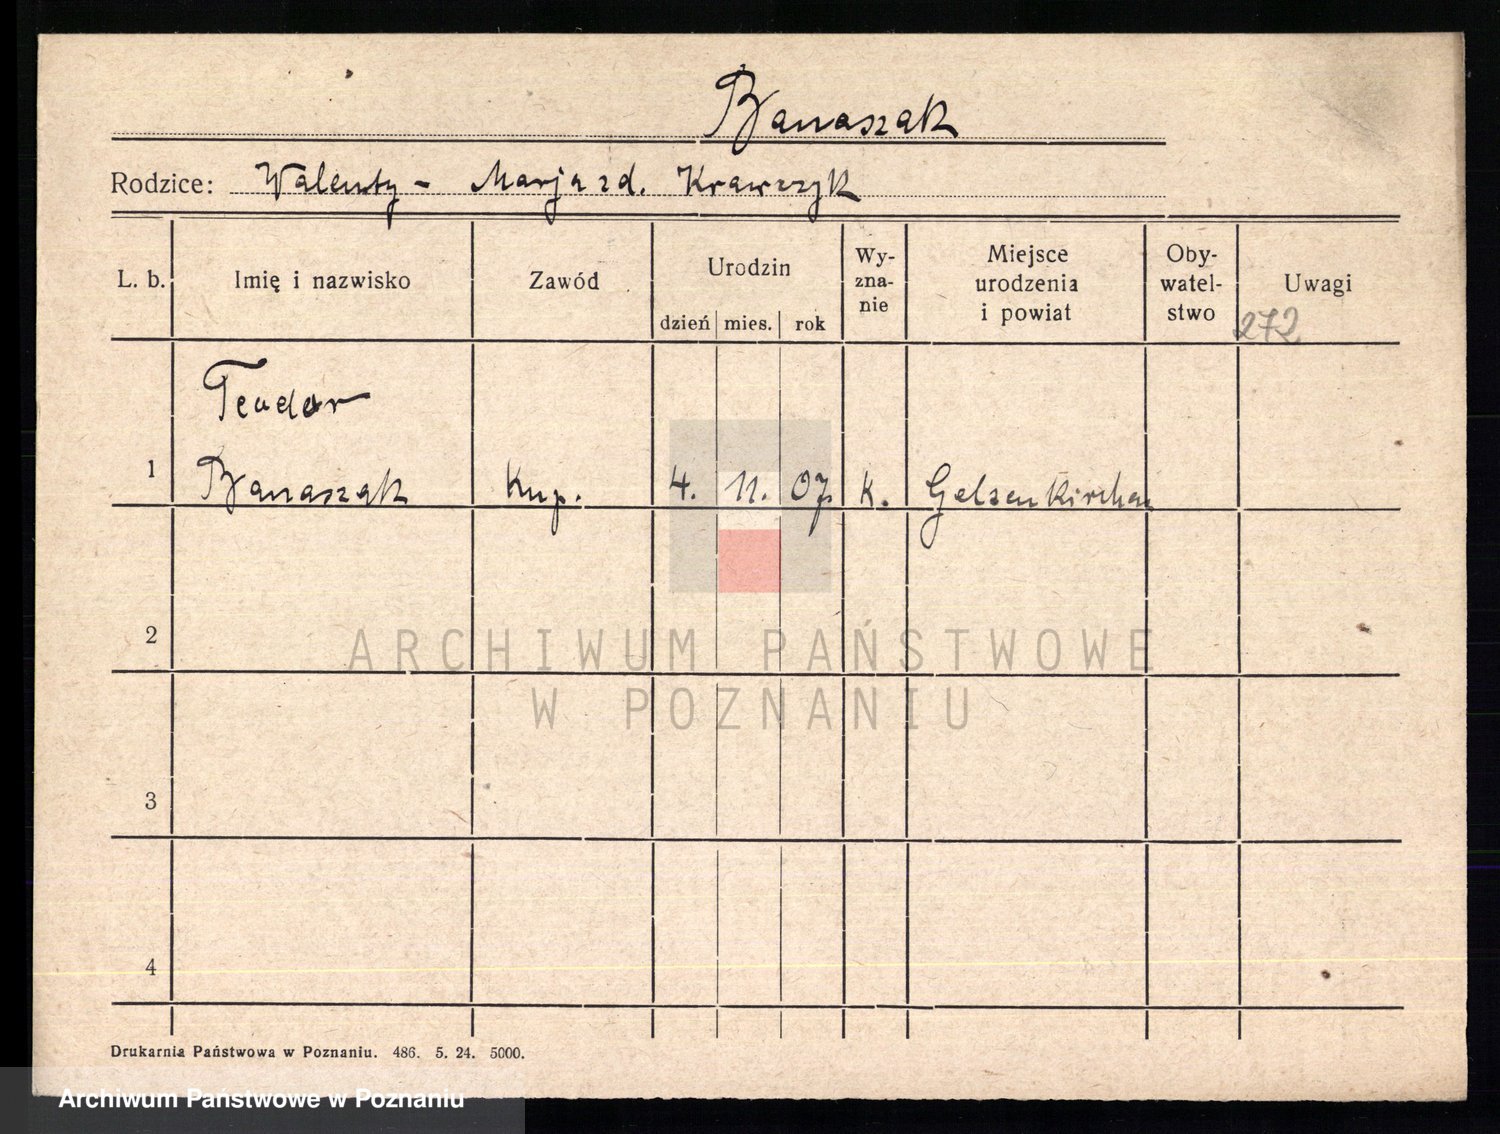 Banaszak
Rodzice: Walenty - Marja zd. Krawczyk
L. b. Imię i nazwisko Zawód Urodzin dzień mies. rok Wy-zna-nie Miejsce urodzenia i powiat Oby-watel-stwo Uwagi
272
Teodor
1 Banaszak Kup. 4. 11. 07. k. Gelsenkirchen
2
ARCHIWUM PAŃSTWOWE
W POZNANIU
3
4
Drukarnia Państwowa w Poznaniu. 486. 5. 24. 5000.
Archiwum Państwowe w Poznaniu